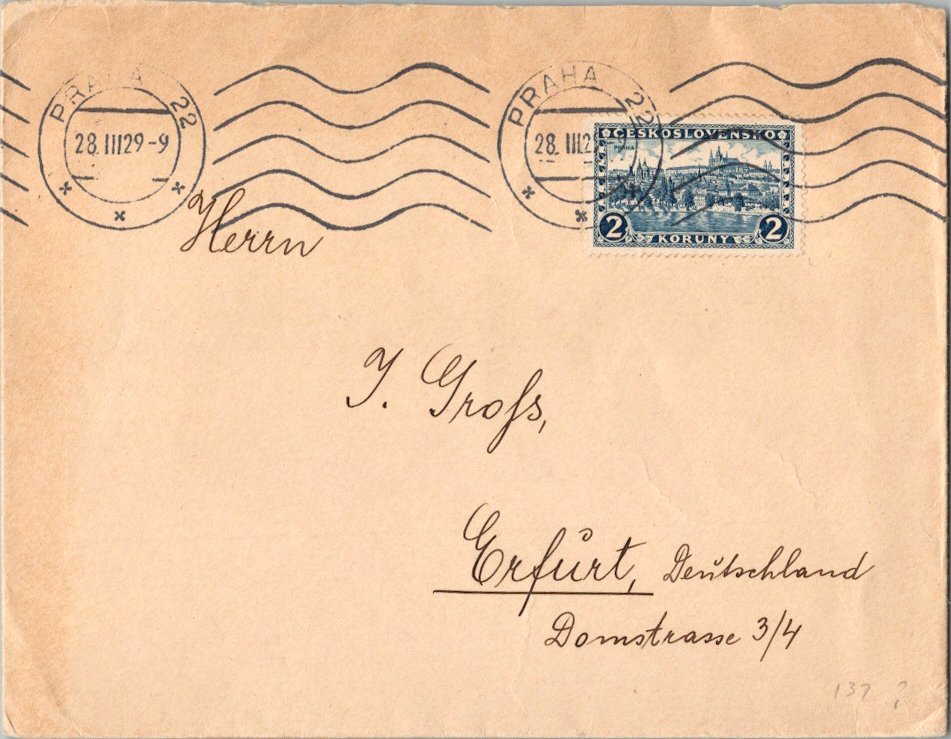 PRAHA 22
28.III29-9
PRAHA 22
28.III29-9
ČESKOSLOVENSKO
2 KORUNY 2
Herrn
J. Grofs,
Erfurt, Deutschland
Domstrasse 3/4
137 ?